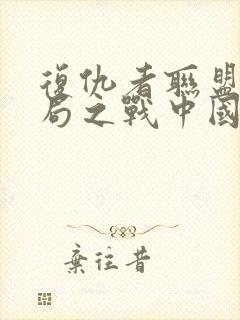 復仇者聯盟
局之戰中國
棄往昔